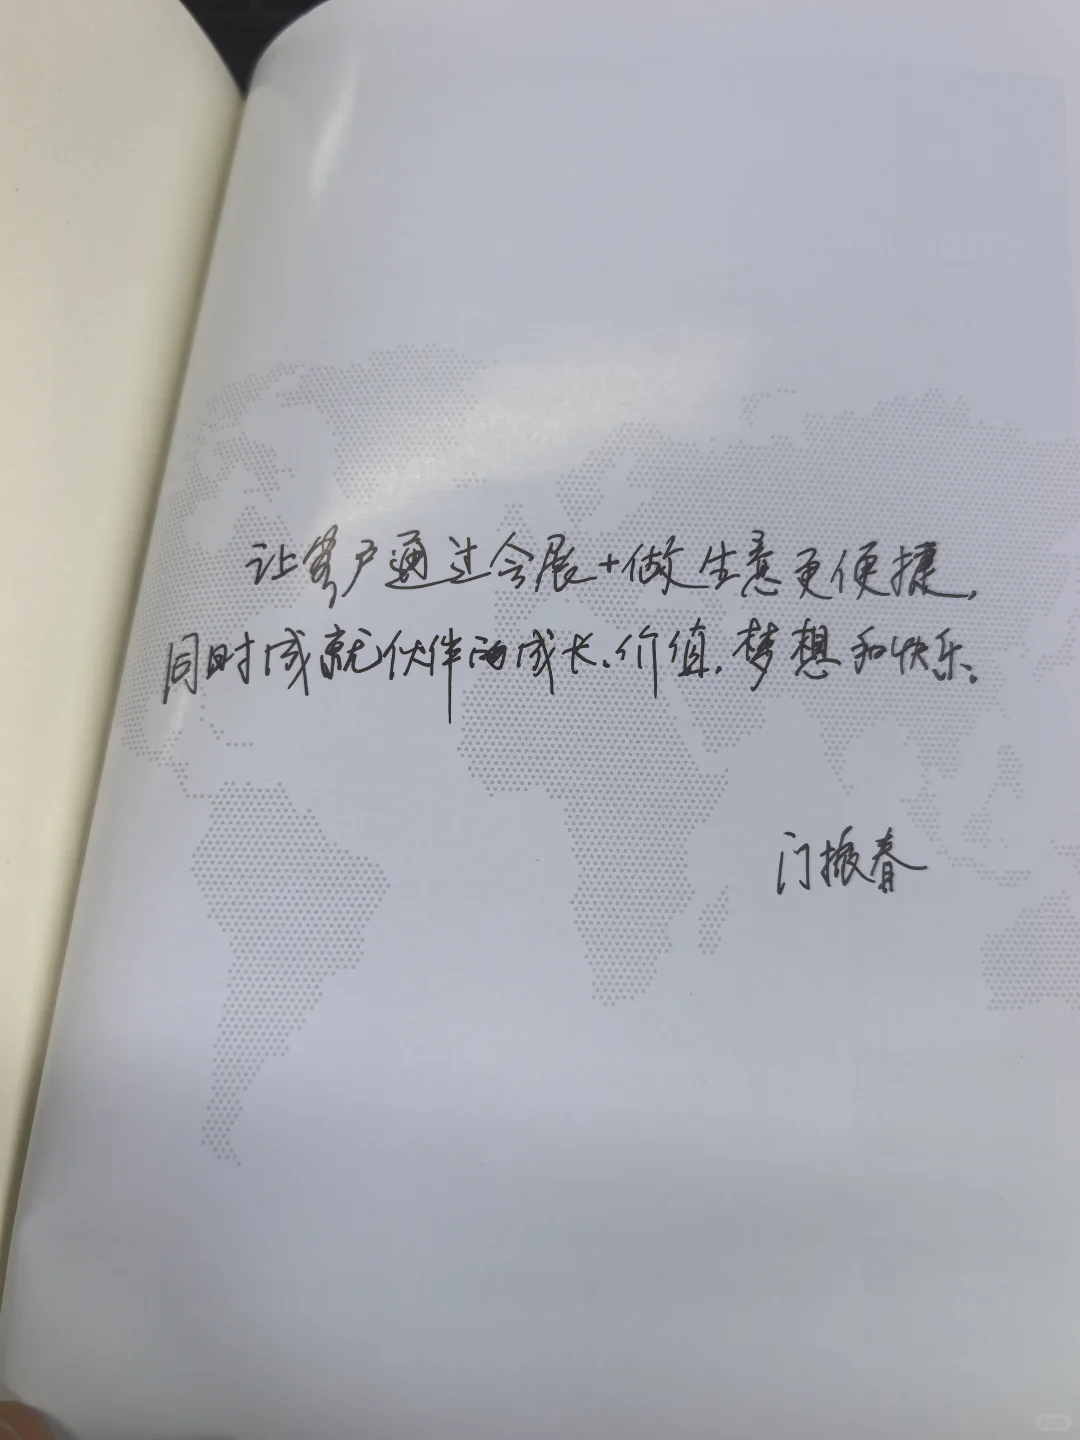 让客户通过会展+做生意更便捷,
同时成就伙伴的成长、价值、梦想和快乐。
门振春